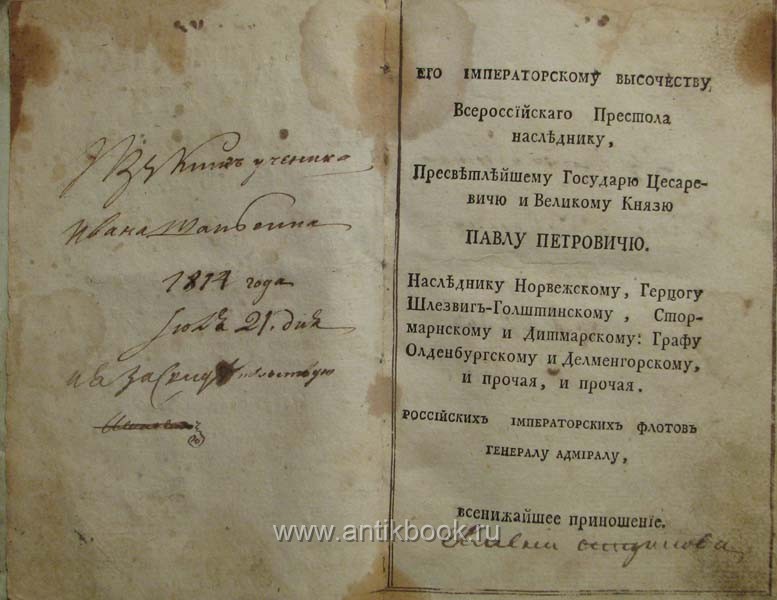 ученика
Ивана
1814 года
21. дня
ЕГО ІМПЕРАТОРСКОМУ ВЫСОЧЕСТВУ
Всероссїйскаго Престола
наслѣднику,
Пресвѣтлѣйшему Государю Цесаре-
вичю и Великому Князю
ПАВЛУ ПЕТРОВИЧЮ.
Наслѣднику Норвежскому, Герцогу
Шлезвигъ-Голштинскому, Стор-
марнскому и Дитмарскому: Графу
Олденбургскому и Делменгорскому,
и прочая, и прочая.
РОССІЙСКИХЪ ІМПЕРАТОРСКИХЪ ФЛОТОВЪ
ГЕНЕРАЛУ АДМІРАЛУ,
всенижайшее приношенїе.
www.antikbook.ru